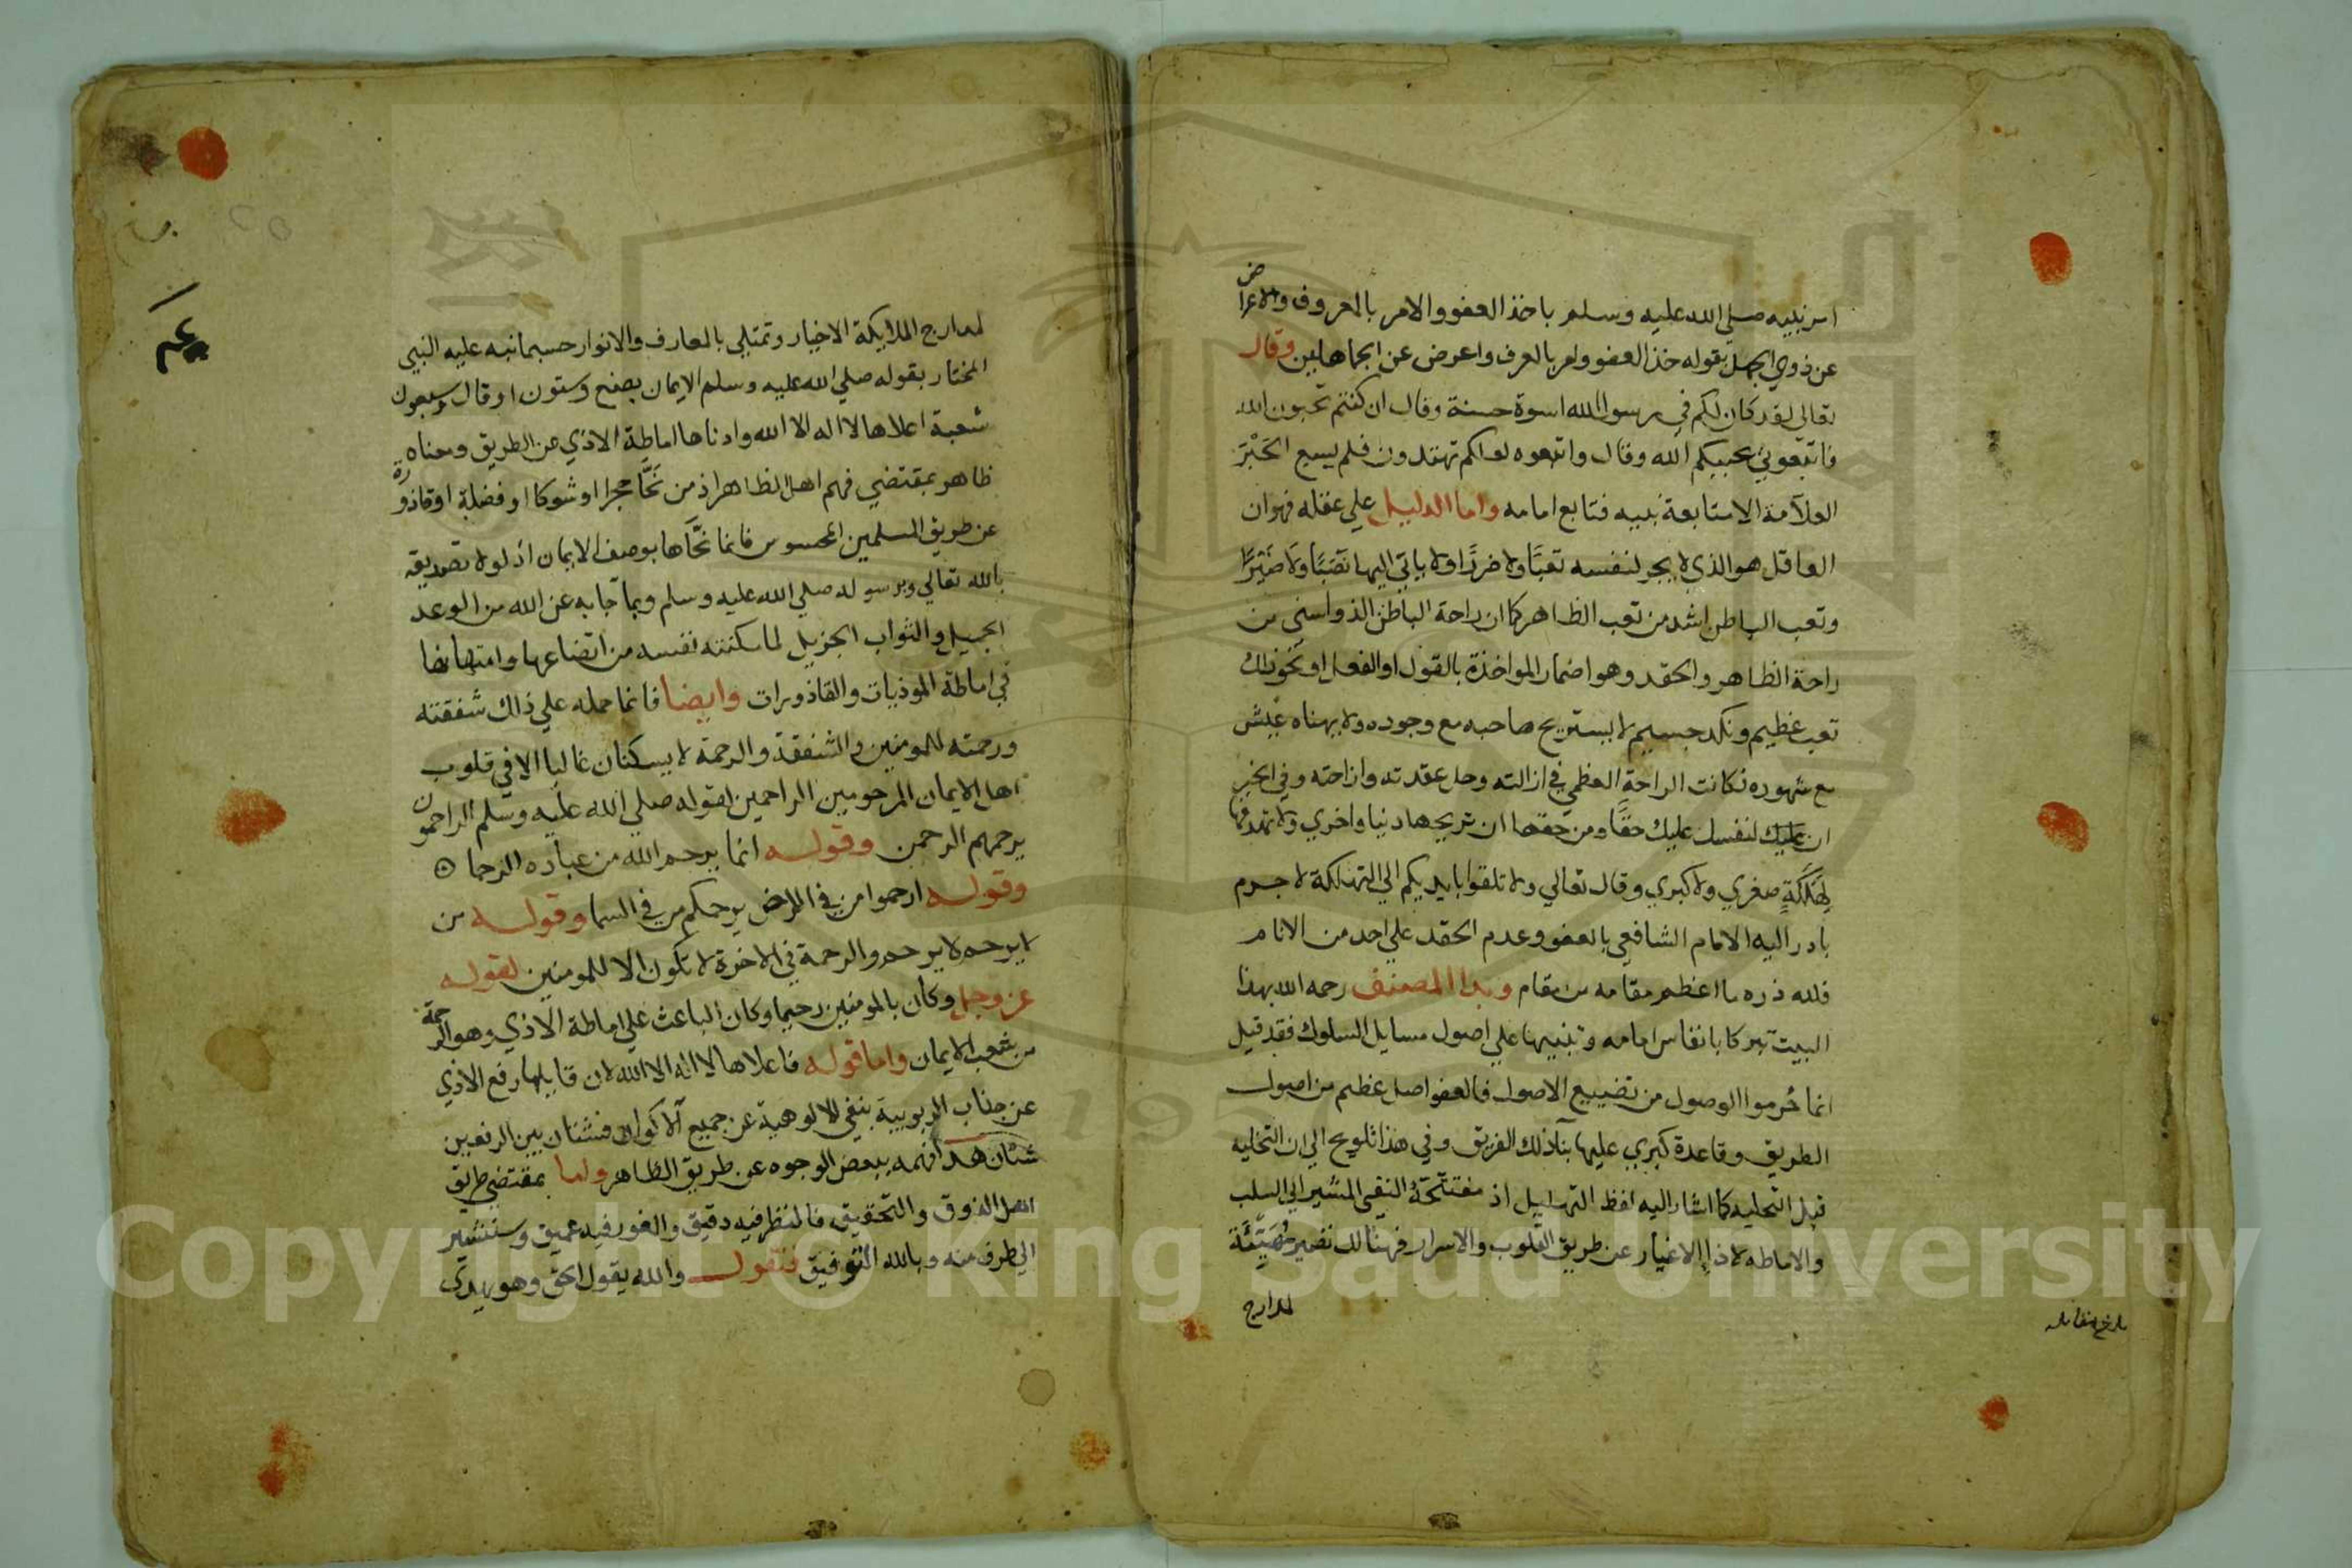 امر نبيه صلي الله عليه وسلم باخذ العفو والامر بالمعروف والاعراض
عن ذوي الجهل بقوله خذ العفو وامر بالعرف واعرض عن الجاهلين وقال
تعالى لقد كان لكم في رسول الله اسوة حسنة وقال ان كنتم تحبون الله
فاتبعوني يحببكم الله وقال واتبعوه لعلكم تهتدون فلم يسع الحَبْرَ
العلآمة الا متابعة نبيه فتابع امامه واما الدليل علي عقله فهو ان
العاقل هو الذي لا يجر لنفسه تعبًا ولا ضررًا ولا ياتي اليها نَصَبًا ولا ضَيْرًا
وتعب الباطن اشد من تعب الظاهر كما ان راحة الباطن الذ واسني من
راحة الظاهر والحقد وهو اضمار المواخذة بالقول او الفعل او نحو ذلك
تعب عظيم ونكد جسيم لا يستريح صاحبه مع وجوده ولا يهناه عيش
مع شهوده فكانت الراحة العظمي في ازالته وحل عقدته وازاحته وفي الخبر
ان عليك لنفسك عليك حقًا ومن حقها ان تريحها دنيا واخري ولا تمدها
لِهَلَكَةٍ صغري ولا كبري وقال تعالي ولا تلقوا بايديكم الي التهلكة لا جرم
بادر اليه الامام الشافعي بالعفو وعدم الحقد علي احد من الانام
فلله دره ما اعظم مقامه من مقام وبدا المصنف رحمه الله بهذا
البيت تبركا بانفاس امامه وتنبيها علي اصول مسايل السلوك فقد قيل
انما حُرموا الوصول من تضييع الاصول فالعفو اصل عظيم من اصول
الطريق وقاعدة كبري عليها بنآ ذلك الفريق وفي هذا تلويح الي ان التخليه
قبل التحليه كما اشار اليه لفظ التهليل اذ مفتتحه النفي المشير الي السلب
والاماطه لاذا الاغيار عن طريق القلوب والاسرار فهنالك تصير مُهَيَّئَة
لمدارج
بلغ مقابله
لمدارج الملايكة الاخيار وتمتلي بالمعارف والانوار حسبما نبه عليه النبي
المختار بقوله صلي الله عليه وسلم الايمان بضع وستون او قال وسبعون
شعبة اعلاها لا اله الا الله وادناها اماطة الاذي عن الطريق ومعناه
ظاهر بمقتضي فهم اهل الظاهر اذ من نَحَّا حجرا او شوكا او فضلة او قاذورة
عن طريق المسلمين المحسوس فانما نحَّاها بوصف الايمان اذ لولا تصديقه
بالله تعالي وبرسوله صلي الله عليه وسلم وبما جا به عن الله من الوعد
الجميل والثواب الجزيل لما سكنته نفسه من اتضاعها وامتهانها
في اماطة الموذيات والقاذورات وايضا فانما حمله علي ذلك شفقته
ورحمته للمومنين والشفقة والرحمة لا يسكنان غالبا الا في قلوب
اهل الايمان المرحومين الراحمين لقوله صلي الله عليه وسلم الراحمون
يرحمهم الرحمن وقوله انما يرحم الله من عباده الرحما
وقوله ارحموا من في الارض يرحمكم من في السما وقوله من
لا يرحم لا يرحم والرحمة في الاخرة لا تكون الا للمومنين لقوله
عز وجل وكان بالمومنين رحيما وكان الباعث علي اماطة الاذي وهو الرحمة
من شعب الايمان واما قوله فاعلاها لا اله الا الله لان قايلها رفع الاذي
عن جناب الربوبية بنفي الالوهية عن جميع الاكوان فشتان بين الرفعين
شتان هذا فهمه ببعض الوجوه عن طريق الظاهر ولما بمقتضي طريق
اهل الذوق والتحقيق فالنظر فيه دقيق والغور فيه عميق وسنشير
الي طرف منه وبالله التوفيق فنقول والله يقول الحق وهو يهدي